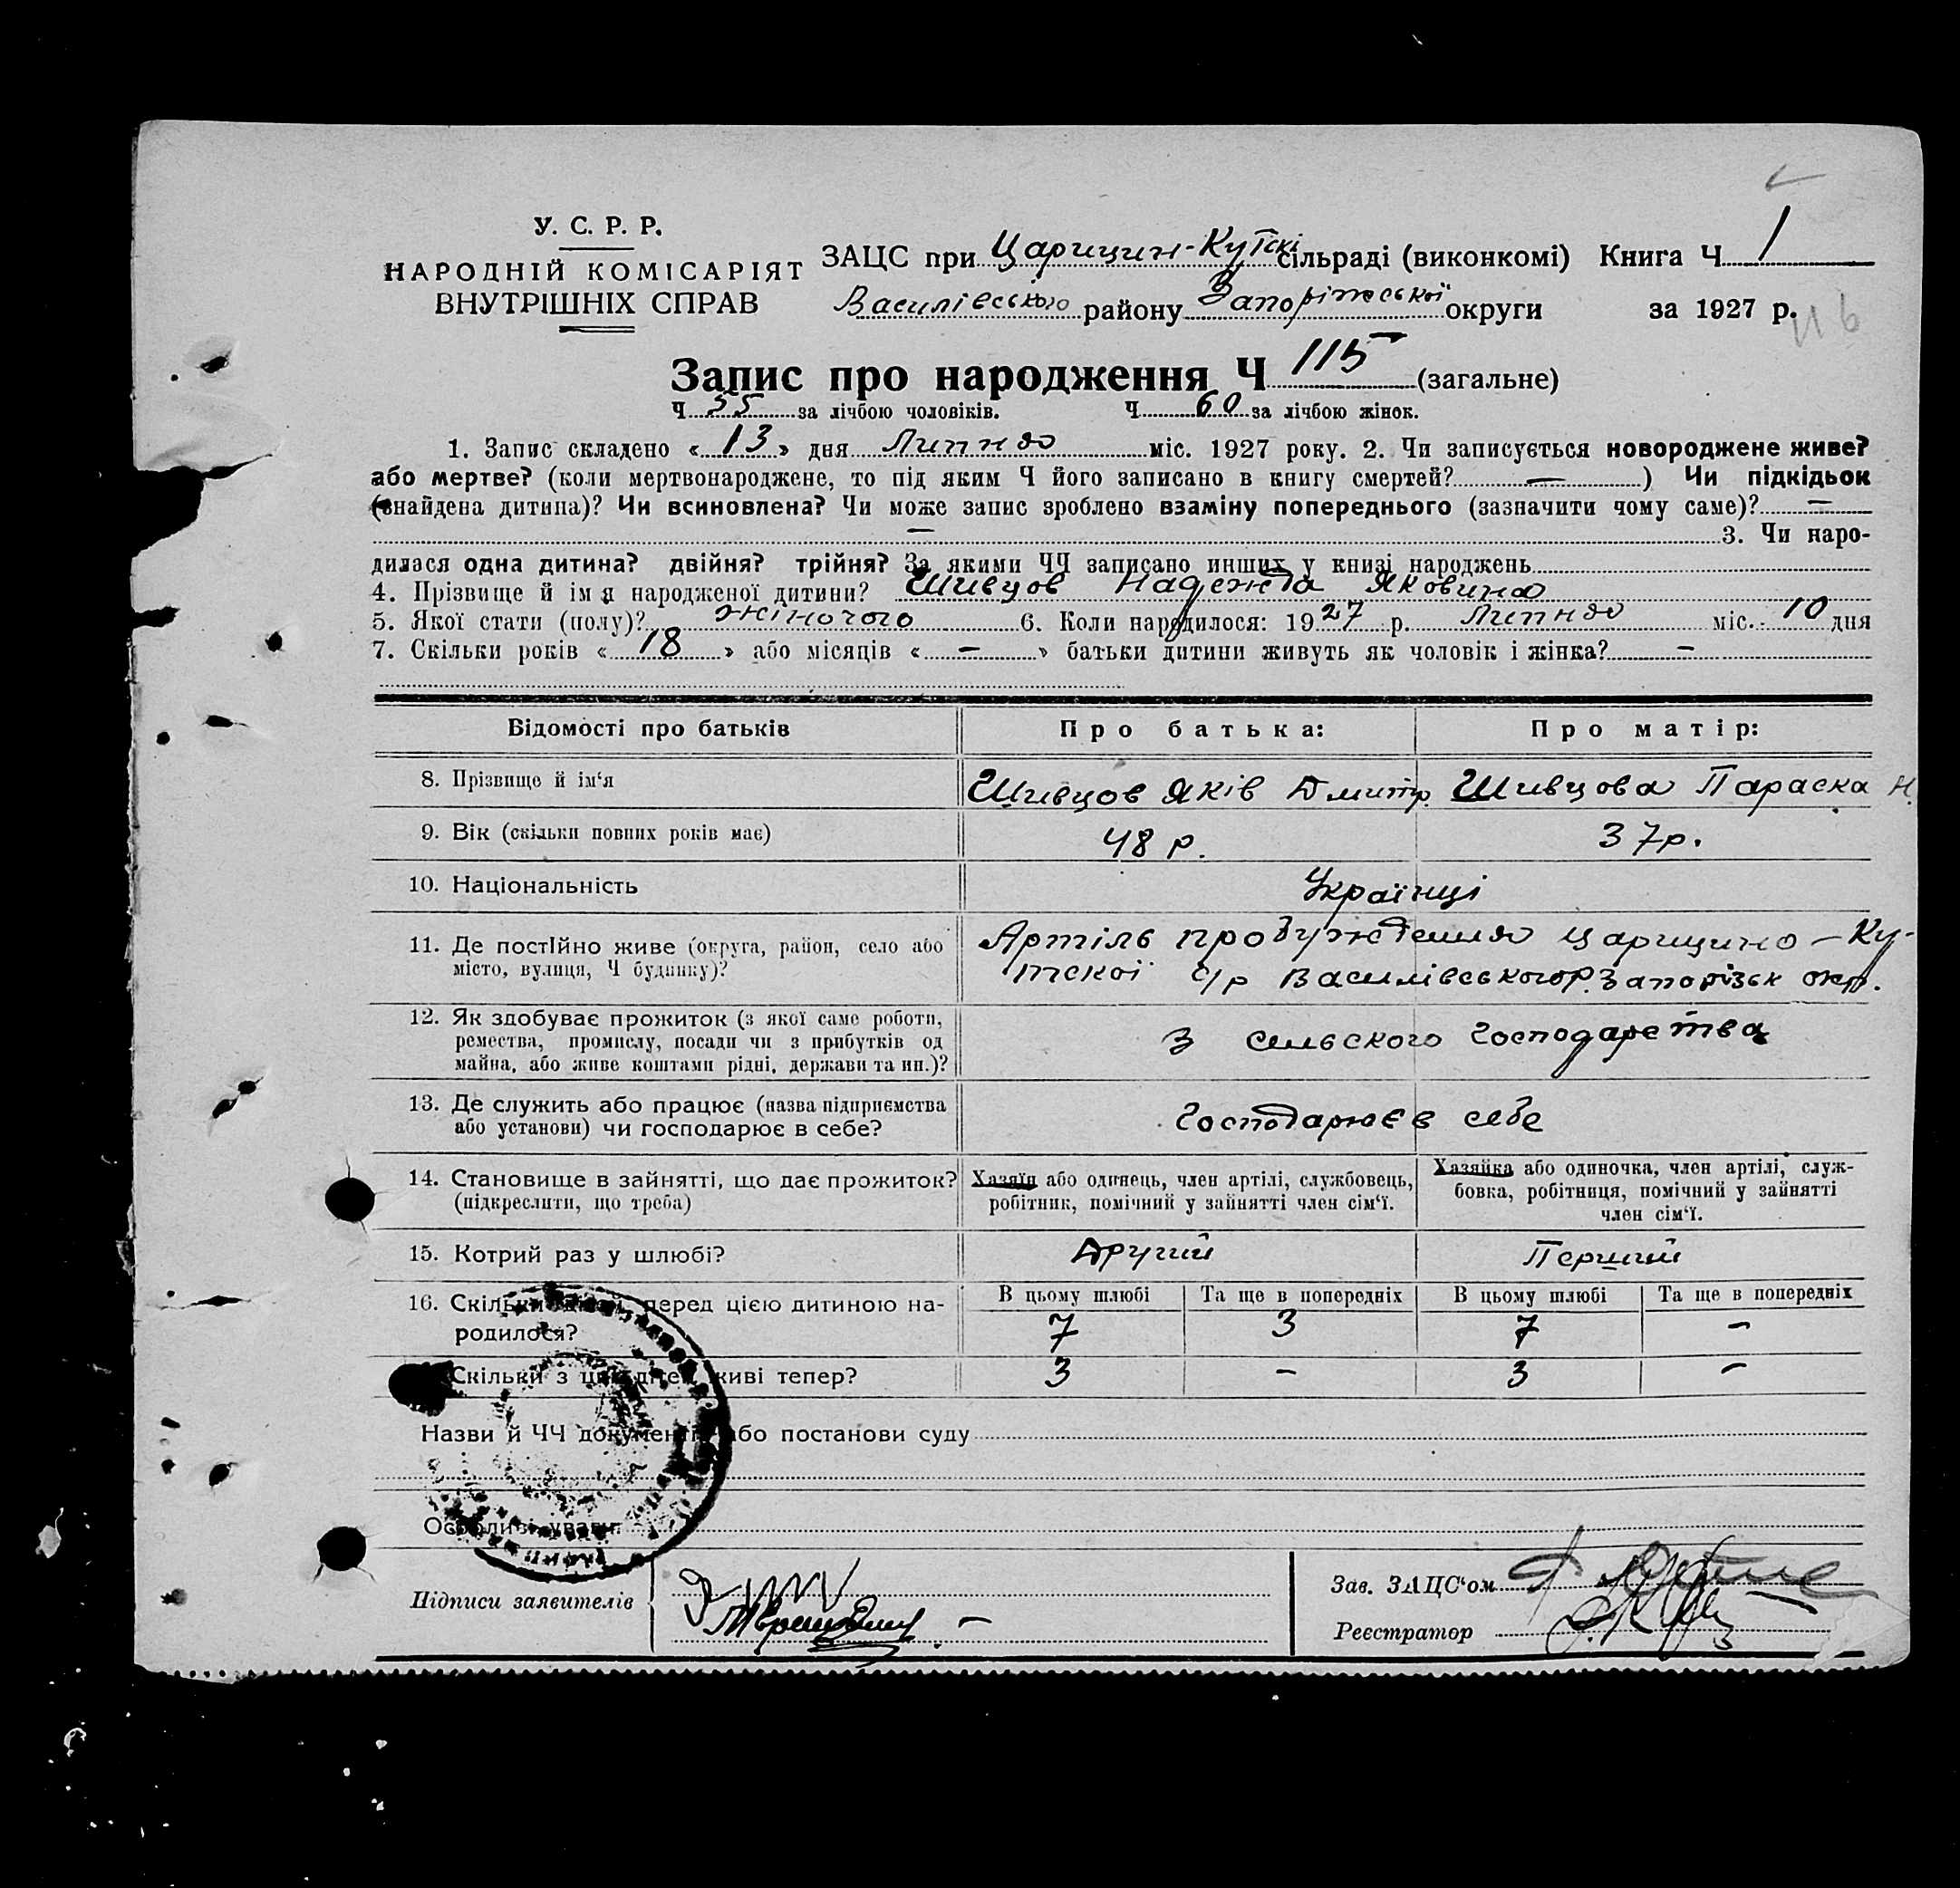 У. С. Р. Р.
НАРОДНІЙ КОМІСАРІЯТ
ВНУТРІШНІХ СПРАВ
ЗАЦС при Царицин-Кутскі сільраді (виконкомі) Книга Ч 1
Василівського району Запоріжської округи за 1927 р.
116
Запис про народження Ч 115 (загальне)
Ч 55 за лічбою чоловіків. Ч 60 за лічбою жінок.
1. Запис складено «13» дня Липня міс. 1927 року. 2. Чи записується новороджене живе?
або мертве? (коли мертвонароджене, то під яким Ч його записано в книгу смертей? —) Чи підкідьок
(знайдена дитина)? Чи всиновлена? Чи може запис зроблено взаміну попереднього (зазначити чому саме)? —
— 3. Чи наро-
дилася одна дитина? двійня? трійня? За якими ЧЧ записано инших у книзі народжень
4. Прізвище й ім я народженої дитини? Шивцов Надежта Яковина
5. Якої стати (полу)? жіночого 6. Коли народилося: 1927 р. Липня міс. 10 дня
7. Скільки років «18» або місяців «—» батьки дитини живуть як чоловік і жінка? —
Відомості про батьків Про батька: Про матір:
8. Прізвище й ім‘я Шивцов Яків Дмитр. Шивцова Параска Н.
9. Вік (скільки повних років має) 48 р. 37р.
10. Національність Українці
11. Де постІйно живе (округа, район, село або Артіль пробуждення Царицино-Ку-
місто, вулиця, Ч будинку)? тской с/р Василівського р. Запорізьк окр.
12. Як здобуває прожиток (з якої саме роботи,
ремества, промислу, посади чи з прибутків од З сельского господарства
майна, або живе коштами рідні, держави та ин.)?
13. Де служить або працює (назва підприємства Господарює в себе
або установи) чи господарює в себе?
14. Становище в зайнятті, що дає прожиток? Хазяїн або одинець, член артілі, службовець, Хазяйка або одиночка, член артілі, служ-
(підкреслити, що треба) робітник, помічний у зайнятті член сім‘ї. бовка, робітниця, помічний у зайнятті
член сім‘ї.
15. Котрий раз у шлюбі? Другий Перший
16. Скільки дітей, перед цією дитиною на- В цьому шлюбі Та ще в попередніх В цьому шлюбі Та ще в попередніх
родилося? 7 3 7 —
Скільки з цих дітей живі тепер? 3 — 3 —
Назви й ЧЧ документів або постанови суду
Особливі уваги
Підписи заявителів
Зав. ЗАЦС‘ом
Реєстратор